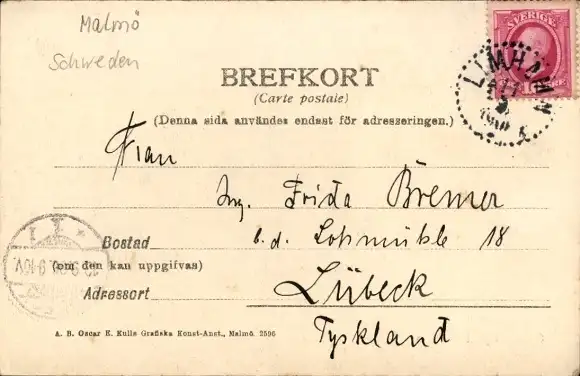 Malmö
Schweden
SVERIGE
LIMHAMN
BREFKORT
(Carte postale)
(Denna sida användes endast för adresseringen.)
Frau
Ing. Frida Bremer
Bostad b. d. Lohmühle 18
(om den kan uppgifvas)
Adressort Lübeck
Tyskland
A. B. Oscar E. Kulls Grafiska Konst-Anst., Malmö. 2596